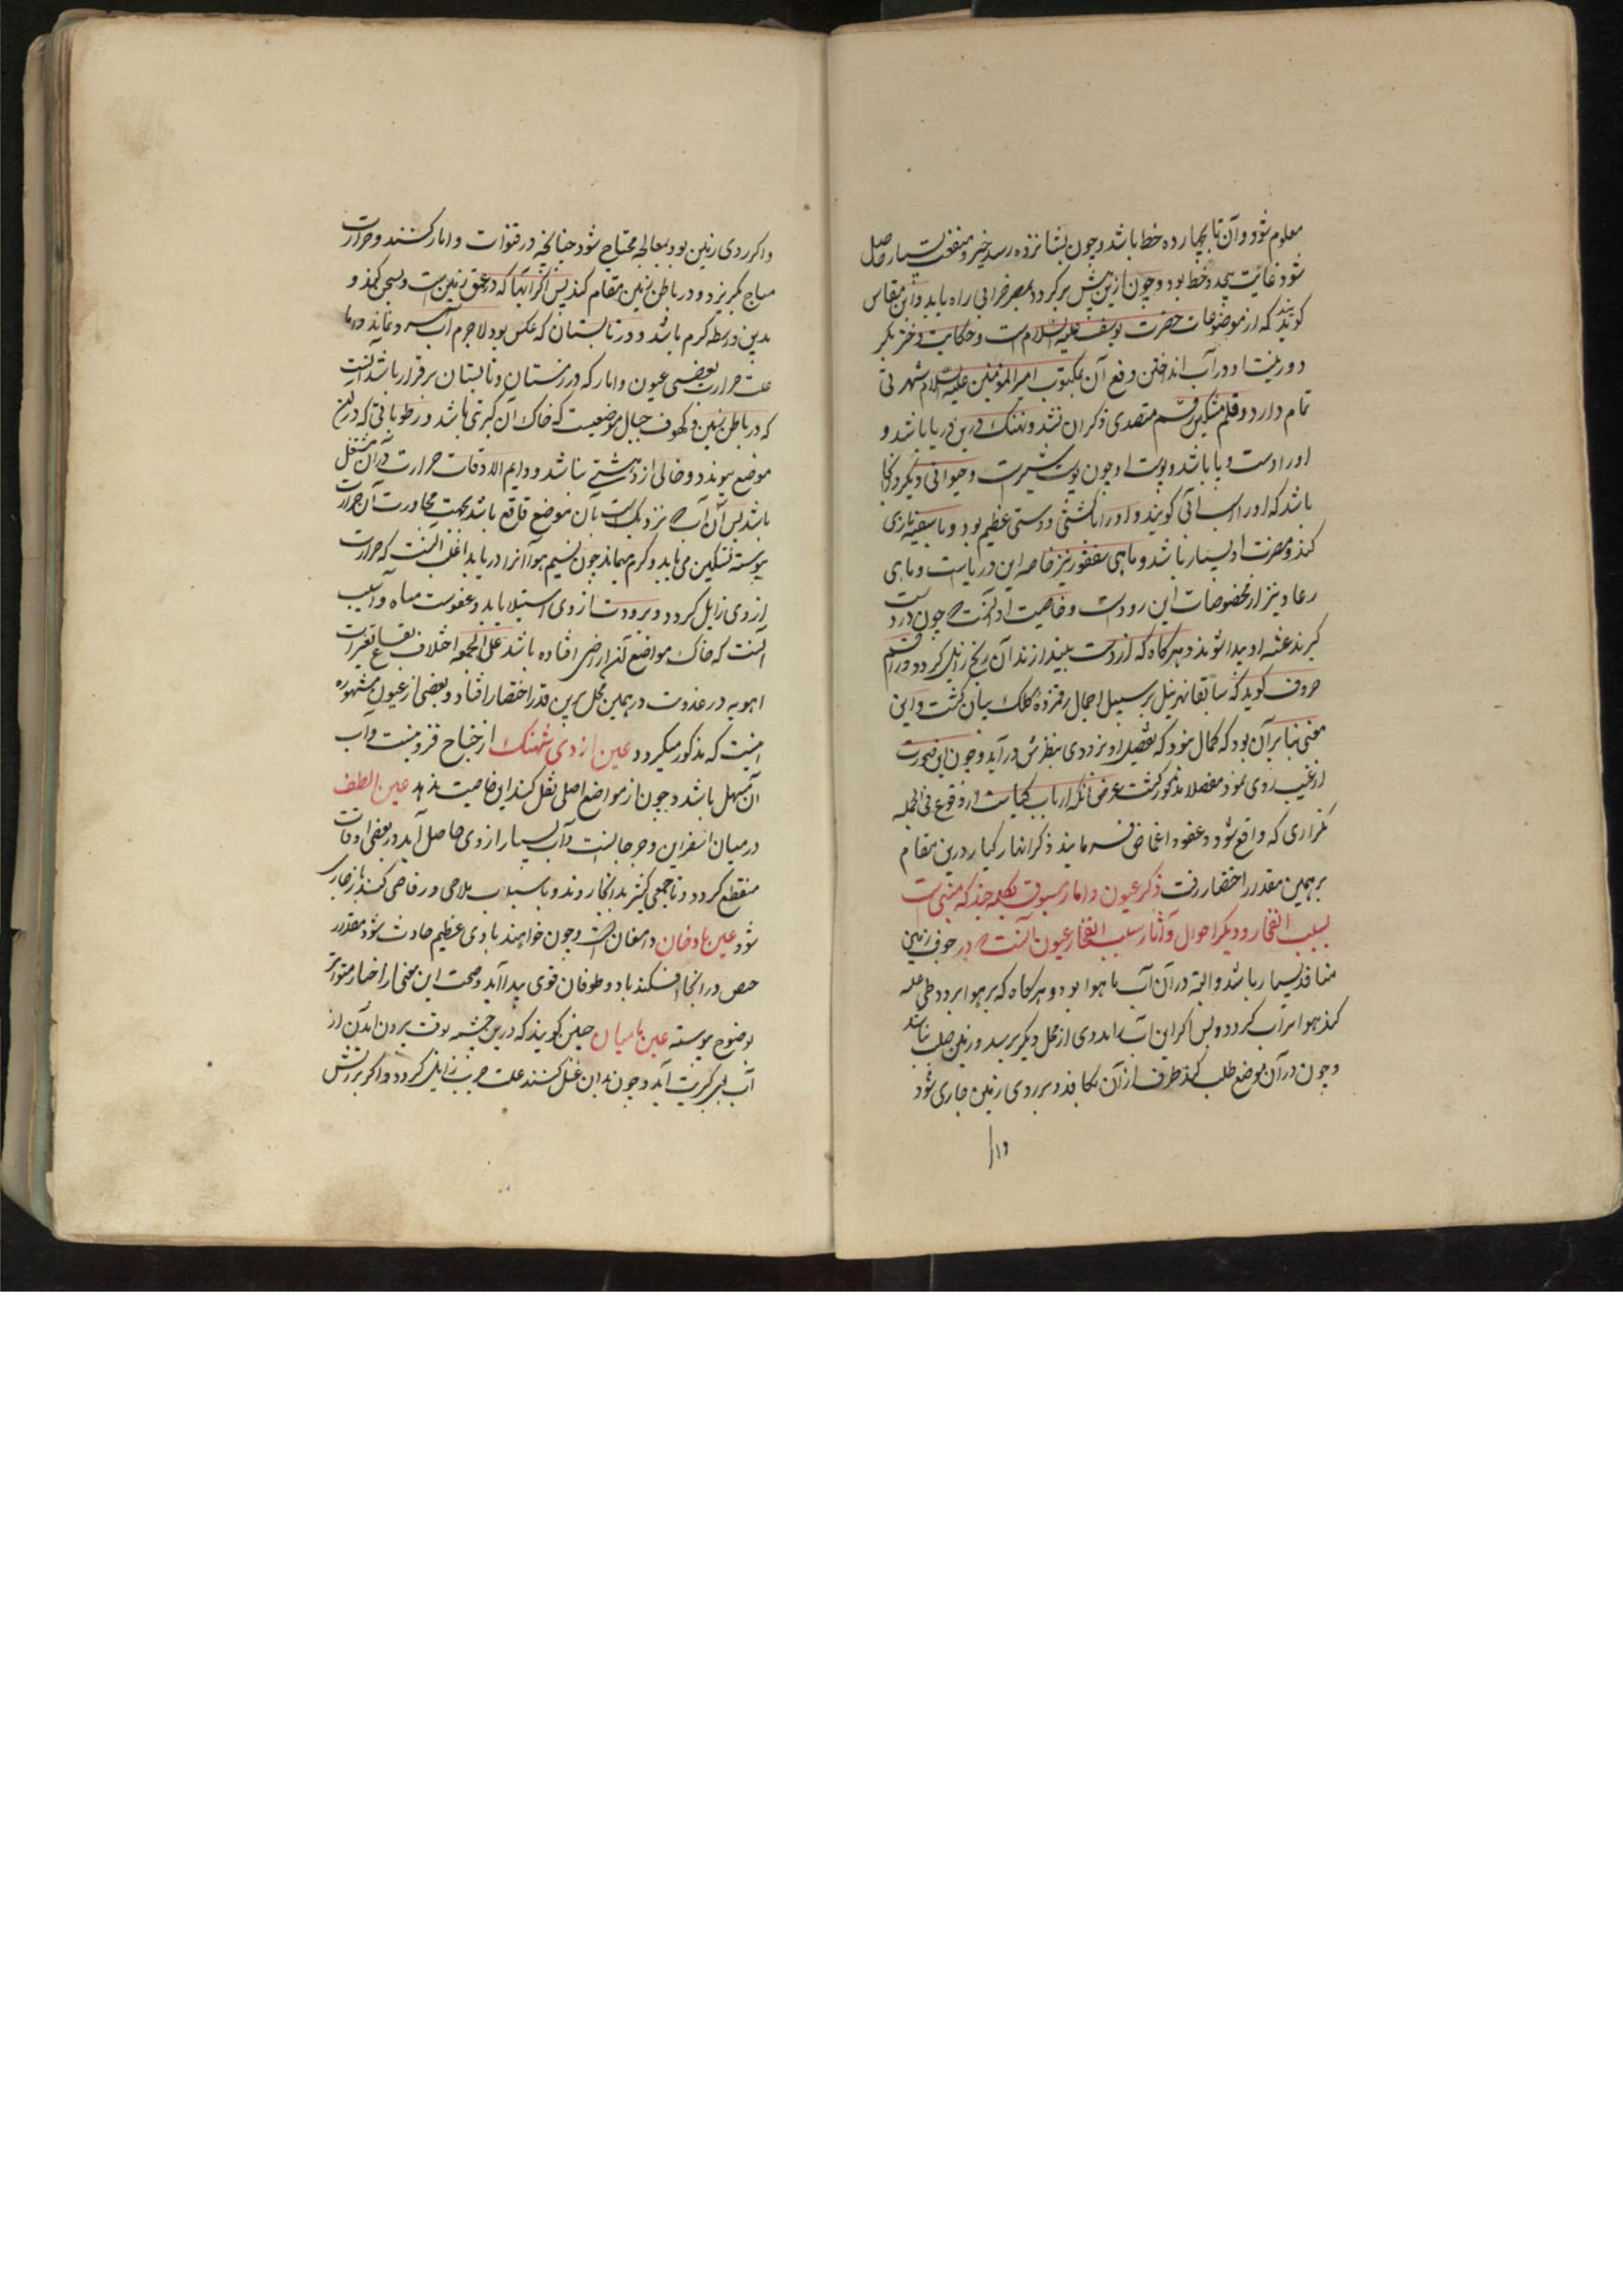 معلوم شود و آن تا بچهارده خط باشد و چون بشانزده رسد خیر و منفعت بسیار حاصل
شود غایت هجده خط بود و چون ازین پیش برگردد بمصر خرابی راه یابد و این مقیاس
گویند که از موضوعات حضرت یوسف علیه السلام است و حکایت دختر بکر
و زینت او در آب انداختن و رفع آن بمکتوب امیر المومنین علیه السلام شهرتی
تمام دارد و قلم مشکین رقم متصدی ذکر آن نشد و نهنگ درین دریا باشد و
او را دست و پا باشد و پوست او چون پوست شیر است و حیوانی دیگر در آنجا
باشد که او را اسب آبی گویند و او را با کشتی دوستی عظیم بود و با سفینه بازی
کند و مضرت او بسیار باشد و ماهی سقنقور نیز خاصه این دریاست و ماهی
رعاد نیز از مخصوصات این رودست و خاصیت او آنست که چون در دست
گیرند رعشه او پیدا شود و هرگاه که از دست بیندازند آن رنج زایل گردد و راقم
حروف گوید که سابقا نهر نیل بر سبیل اجمال رقم زده کلک بیان گشت و این
معنی بنابر آن بود که گمان نبود که تفصیل او بزودی بنظرش در آید و چون این صورت
از غیب روی نمود مفصلا مذکور گشت غرض آنکه ارباب کیاست از وقوع فی الجمله
تکراری که واقع شود عفو و اغماض فرمایند ذکر انهار کبار درین مقام
بر همین مقدار اختصار رفت ذکر عیون و آبار مسبوق بکلمه چند که مبنی است
بسبب انفجار و دیگر احوال و آثار سبب انفجار عیون آنست که در جوف زمین
منافذ بسیار باشد و البته در آن آب یا هوا بود و هرگاه که بر هوا برودتی غلبه
کند هوا نیز آب گردد و پس اگر این آب را مددی از محل دیگر برسد و زمین صلب نباشد
و چون در آن موضع طلب کند طرف از آن بکافد و بر روی زمین جاری شود
و اگر
و اگر روی زمین بود بمعالجه محتاج شود چنانچه در قنوات و آبار کنند و حرارت
میاه بگریزد و در باطن زمین مقام کند پس اکثر آبها که در عمق زمین است تسخن کند و
بدین واسطه گرم باشد و در تابستان که عکس بود لاجرم آب سرد نماید و اما
علت حرارت بعضی عیون و آبار که در زمستان و تابستان برقرار باشد آنست
که در باطن زمین و کهوف جبال موضعیست که خاک آن کبریتی باشد و رطوباتی که درین
موضع پیوندد و خالی از دهنیتی نباشد و دایم الاوقات حرارت در آن مشتعل
باشد پس آن آب که نزدیک است بآن موضع واقع باشد بجهت مجاورت آن حرارت
پیوسته تسکین می یابد و گرم میماند چون نسیم هوا آنرا دریابد اغلب آنست که حرارت
از وی زایل گردد و برودت از وی استیلا یابد و عفونت میاه و آسیب
آنست که خاک مواضع آن اراضی افتاده باشد علی الجمله اختلاف بقاع تغیرات
اهویه در عذوبت در همین محل برین قدر اختصار افتاد و بعضی از عیون مشهوره
اینست که مذکور میگردد عین ازدی شهنک از جناح قزوینست و آب
آن مسهل باشد و چون از مواضع اصلی نقل کنند این خاصیت ندهد عین الطف
در میان اسفراین و جرجانست و آب بسیار از وی حاصل آید در بعضی اوقات
منقطع گردد و تا جمعی کثیر بدانجا روند و با اسباب ملاهی و رقاصی کنند باز جاری
شود عین بادخان دامغان است و چون خواهند بادی عظیم حادث شود مقدار
حیض در آنجا افکنند باد و طوفان قوی پیدا آید و صحت این معنی از اخبار متواتر
بوضوح پیوسته عین بامیان چنین گویند که درین چشمه بوقت بیرون آمدن از
آب بوی کبریت آید و چون بدان غسل کنند علت جرب زایل گردد و اگر بررشش